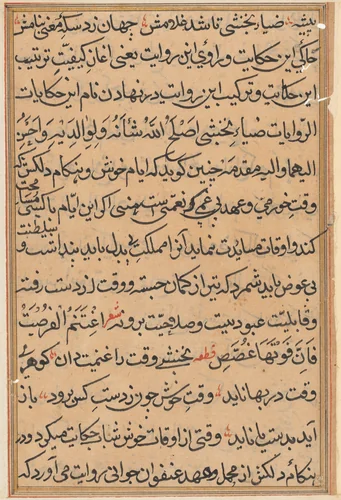 بیشه ضیاء نخشبی تا شد غلامش جهان زد سکه معنی بنامش
حاکی این حکایت و راوی این روایت یعنی آغاز کیفیت ترتیب
این حکایت و ترکیب این روایت در نهادن نام این حکایات
الروایات ضیاء نخشبی اصلح الله شأنه ولوالدیه واحسن
الیهما والیه مقدمه چنین گوید که ایام خوش و هنگام دلکش
وقت خرمی و عهد بی غمی نعمتی است هنی اگر این ایام با کسی
کند و اوقات مساعدت نماید آنرا مملکت بی بدل باید پنداشت و
بی عوض باید شمرد که تیر از کمان جسته و وقت از دست رفته
و قابلیت عبودیت و صلاحیت برونه شعر اغتنم الفرصة
فان فوتها غصص قطعه نخشبی وقت را غنیمت دان کوهر
وقت در بها ناید وقت خوش چون ز دست کس برود باز
آید مدبت یا ناید وقتی از اوقات خوش شبان حکایت میکرد و در
هنگام دلکش از مجمل و عهد عنفوان جوانی روایت می آورد که